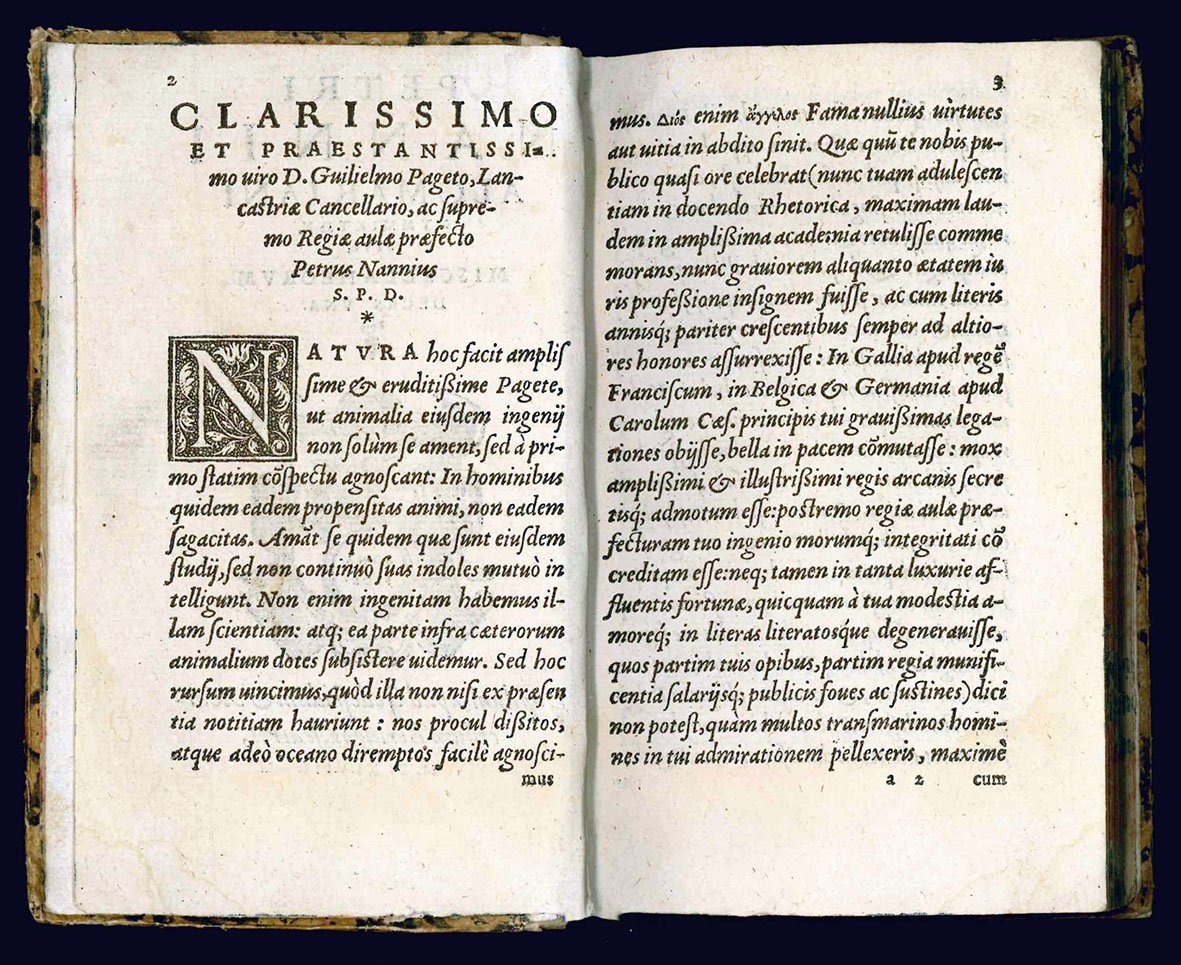 2
CLARISSIMO
ET PRAESTANTISSI-
mo uiro D. Guilielmo Pageto, Lan-
castriæ Cancellario, ac supre-
mo Regiæ aulæ præfecto
Petrus Nannius
S. P. D.
*
NATVRA hoc facit amplis
sime & eruditißime Pagete,
ut animalia eiusdem ingenij
non solùm se ament, sed à pri-
mo statim cōspectu agnoscant: In hominibus
quidem eadem propensitas animi, non eadem
sagacitas. Amāt se quidem quæ sunt eiusdem
studij, sed non continuò suas indoles mutuò in
telligunt. Non enim ingenitam habemus il-
lam scientiam: atq; ea parte infra cæterorum
animalium dotes subsistere uidemur. Sed hoc
rursum uincimus, quòd illa non nisi ex præsen
tia notitiam hauriunt: nos procul dißitos,
atque adeò oceano diremptos facilè agnosci-
mus
3
mus. Διός enim ἄγγελος Fama nullius uirtutes
aut uitia in abdito sinit. Quæ quū te nobis pu-
blico quasi ore celebrat (nunc tuam adulescen
tiam in docendo Rhetorica, maximam lau-
dem in amplißima academia retulisse comme
morans, nunc grauiorem aliquanto ætatem iu
ris profeßione insignem fuisse, ac cum literis
annisq́; pariter crescentibus semper ad altio-
res honores assurrexisse: In Gallia apud regē
Franciscum, in Belgica & Germania apud
Carolum Cæs. principis tui grauißimas lega-
tiones obijsse, bella in pacem cōmutasse: mox
amplißimi & illustrißimi regis arcanis secre
tisq́; admotum esse: postremo regiæ aulæ præ-
fecturam tuo ingenio morumq́; integritati cō
creditam esse: neq; tamen in tanta luxurie af-
fluentis fortunæ, quicquam à tua modestia a-
moreq́; in literas literatosq́ue degenerauisse,
quos partim tuis opibus, partim regia munifi-
centia salarijsq́; publicis foues ac sustines) dici
non potest, quàm multos transmarinos homi-
nes in tui admirationem pellexeris, maximè
a 2 cum